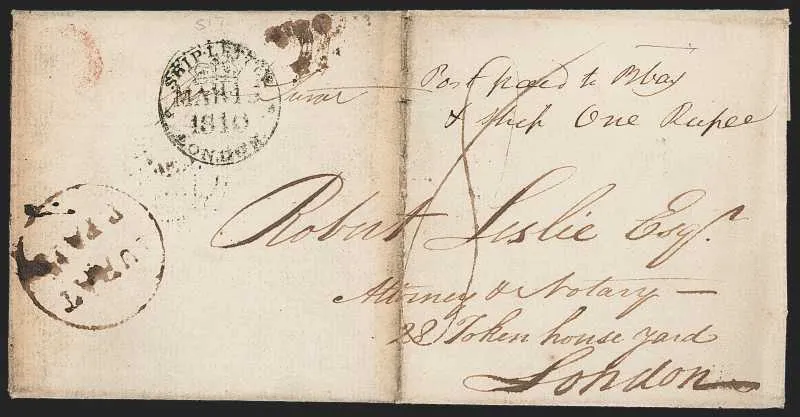 SHIP LETTER
MAR 13
1819
LONDON
Surat
Post paid to Bbay
& Ship One Rupee
SURAT
P.PAID
Robert Leslie Esqr.
Attorney & Notary —
28 Token house yard
London